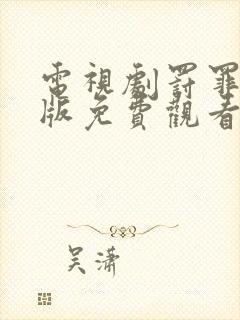 電視劇罰罪
版免費觀看
吴潇